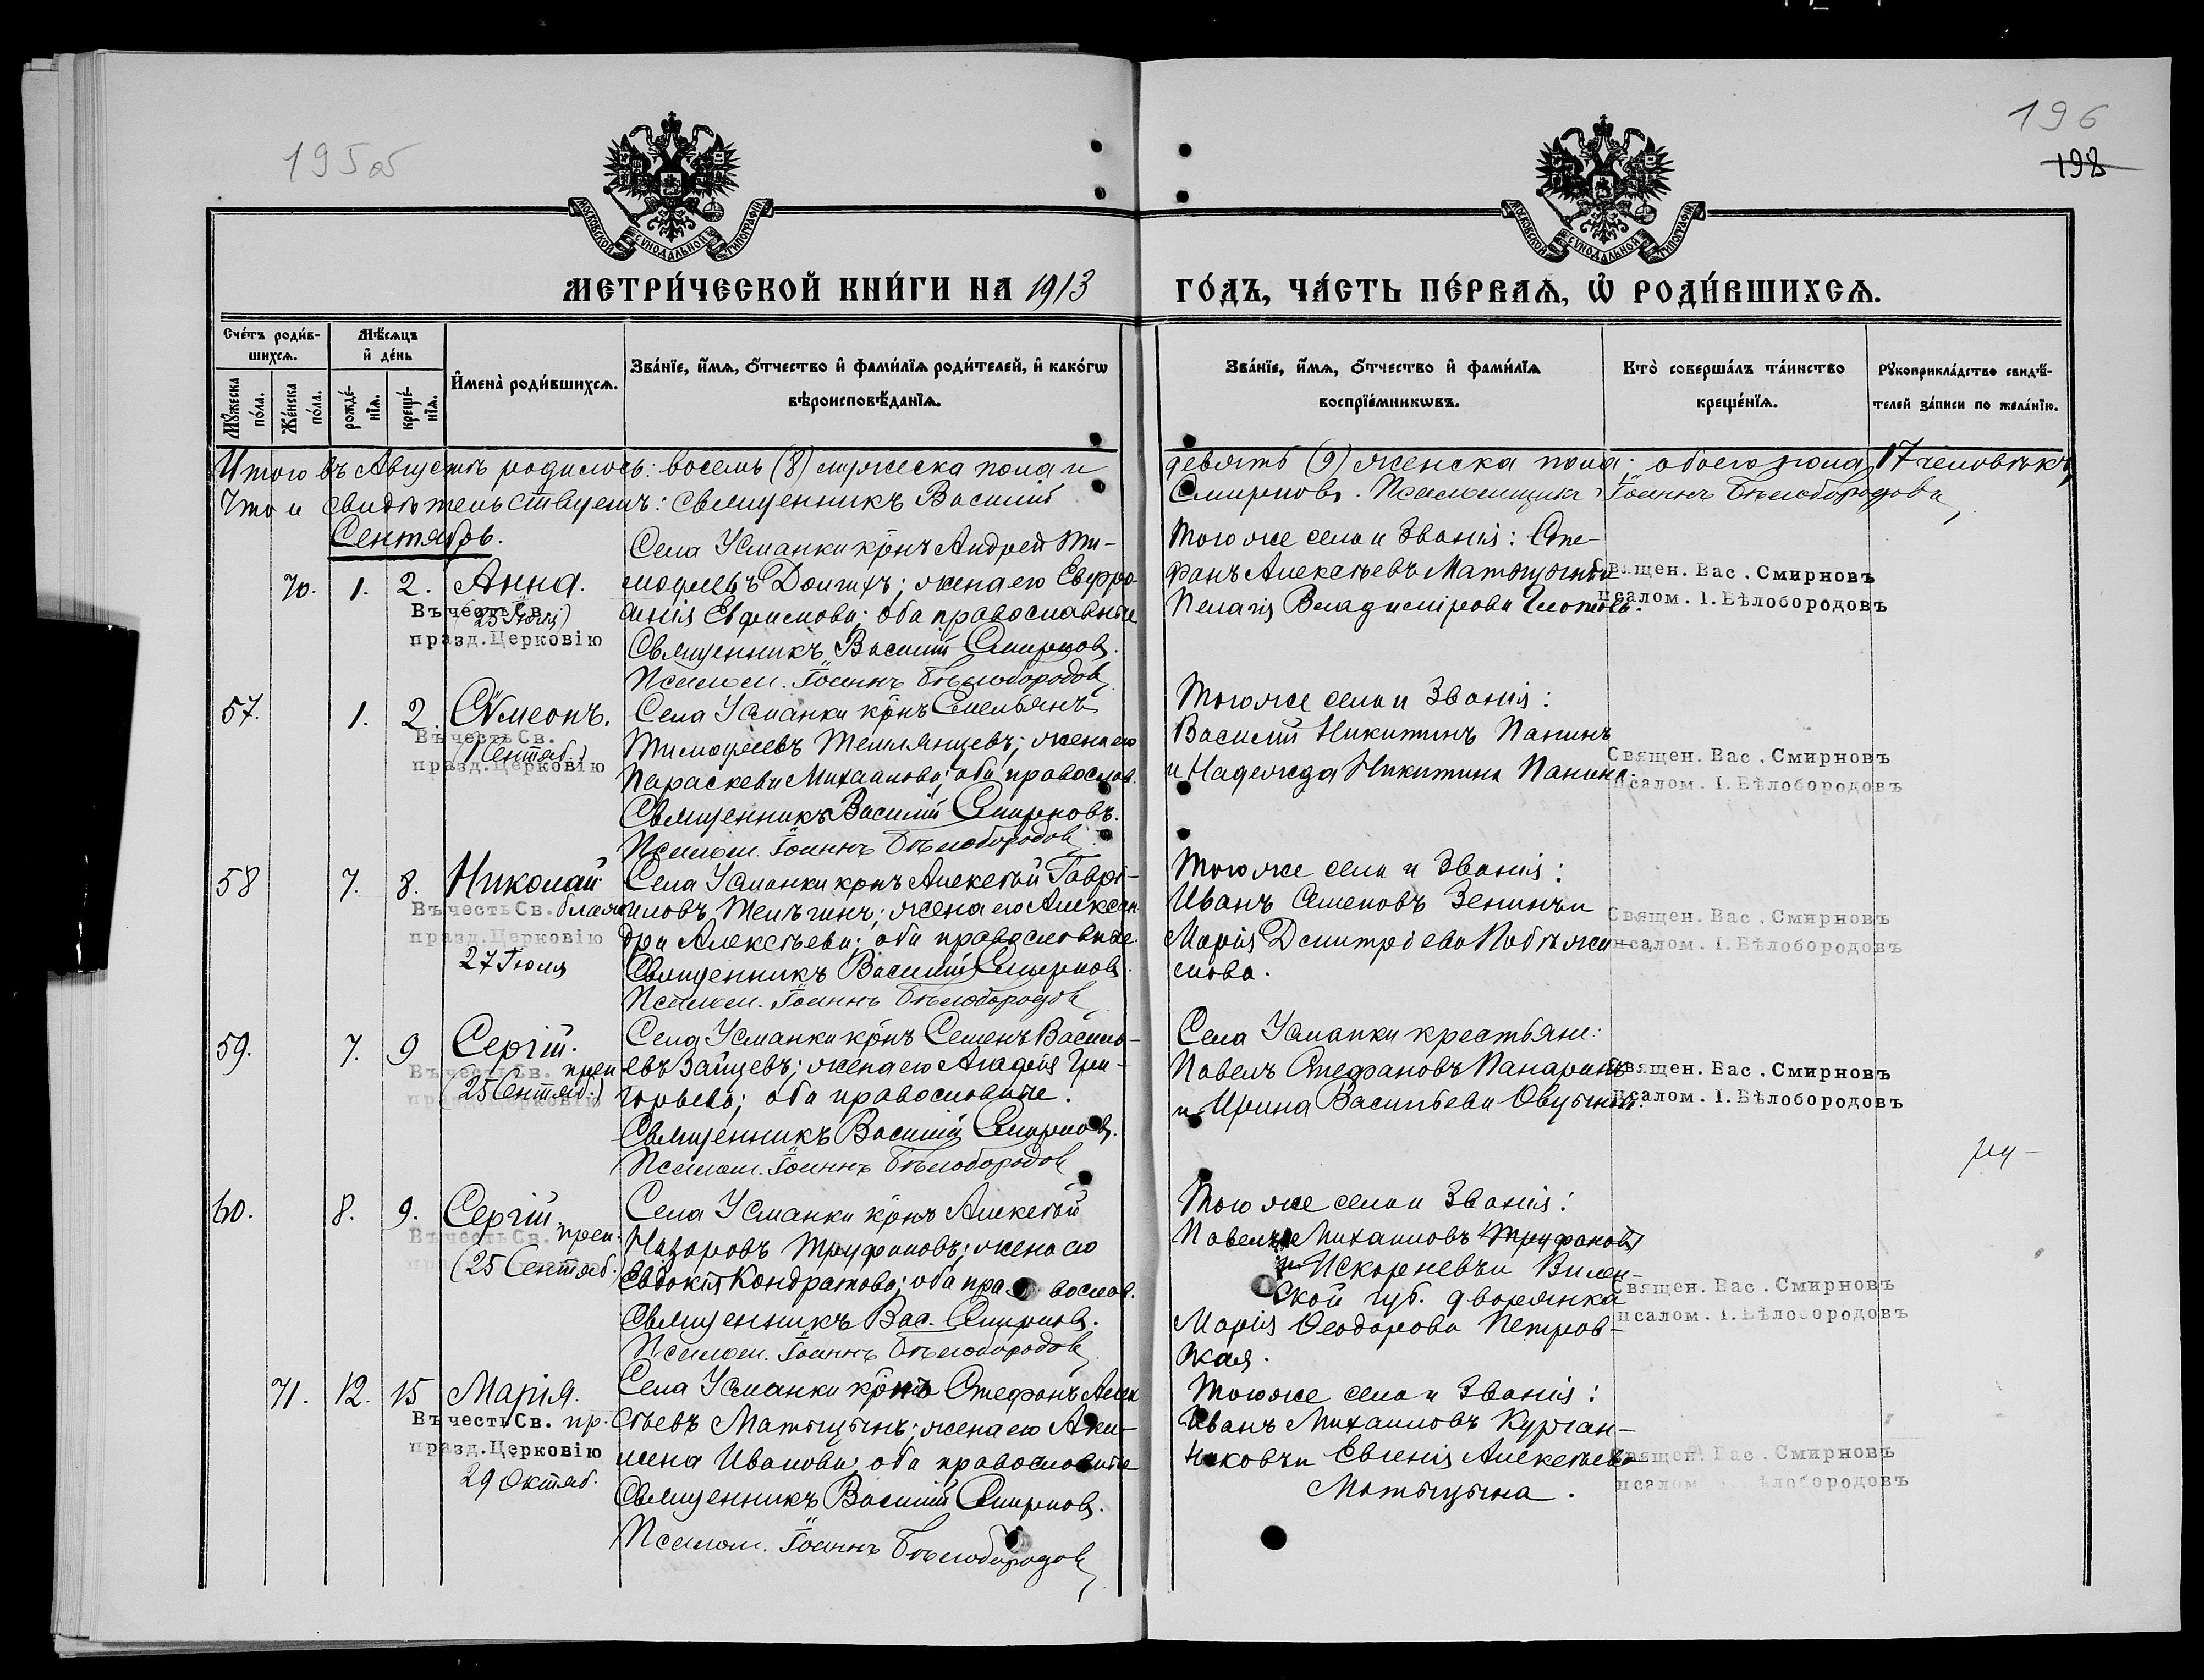 195об
196
198
МОСКОВСКОЙ СѴНОДАЛЬНОЙ ТИПОГРАФІИ
МОСКОВСКОЙ СѴНОДАЛЬНОЙ ТИПОГРАФІИ
МЕТРИ́ЧЕСКОЙ КНИ́ГИ НА 1913 ГО́ДЪ, ЧА́СТЬ ПЕ́РВАѦ, Ѡ҆ РОДИ́ВШИХСѦ.
Сче́тъ роди́в-
шихсѧ.
Мꙋ́жеска по́ла.
Же́нска по́ла.
Мѣ́сѧцъ
и҆ де́нь
рожде́-
нїѧ.
креще́-
нїѧ.
И҆мена̀ роди́вшихсѧ.
Зва́нїе, и҆́мѧ, ѻ҆́тчество и҆ фами́лїѧ роди́телей, и҆ како́гѡ
вѣроисповѣ́данїѧ.
Зва́нїе, и҆́мѧ, ѻ҆́тчество и҆ фами́лїѧ
воспрїе́мникѡвъ.
Кто̀ соверша́лъ та́инство
креще́нїѧ.
Рꙋкоприкла́дство свидѣ́-
телей за́писи по жела́нїю.
Итого въ Августѣ родилось: восемь (8) мужеска пола и девять (9) женска пола; обоего пола 17 человѣкъ,
Что и свидѣтельствуемъ: Священникъ Василій Смирновъ. Псаломщикъ Іоаннъ Бѣлобородовъ
Сентябрь.
70. 1. 2. Анна.
Въ честь Св.
празд. Церковію
Села Усманки крнъ Андрей Ти-
мофеевъ Долгихъ; жена его Евфро
синія Ефимова; оба православные
Священникъ Василій Смирновъ.
Псалом. Іоаннъ Бѣлобородовъ
Того же села и званія: Сте-
фанъ Алексѣевъ Матыцынъ и
Пелагія Владимірова
Священ. Вас. Смирновъ
псалом. І. Бѣлобородовъ
57. 1. 2. Сѵмеонъ.
Въ честь Св.
(1 Сентяб.)
празд. Церковію
Села Усманки крнъ Емельянъ
Тимофеевъ Темлянцевъ; жена его
Параскева Михаилова; оба правосла.
Священникъ Василій Смирновъ.
Псалом. Іоаннъ Бѣлобородовъ
Того же села и званія:
Василій Никитинъ Панинъ
и Надежда Никитина Панина.
Священ. Вас. Смирновъ
псалом. І. Бѣлобородовъ
58 7. 8. Николай
Въ честь Св. блаж.
празд. Церковію
27 Іюля
Села Усманки крнъ Алексѣй Гаврі-
иловъ Телѣгинъ; жена его Алексан
дра Алексѣева; оба православные.
Священникъ Василій Смирновъ.
Псалом. Іоаннъ Бѣлобородовъ
Того же села и званія:
Иванъ Семеновъ Зенинъ и
Марія Димитріева Побѣжи-
мова.
Священ. Вас. Смирновъ
псалом. І. Бѣлобородовъ
59. 7. 9 Сергій.
Въ честь Св. преп
(25 Сентяб.)
празд. Церковію
Села Усманки крнъ Семенъ Василь-
евъ Зайцевъ; жена его Агафія Гри-
горьева; оба православные.
Священникъ Василій Смирновъ.
Псалом. Іоаннъ Бѣлобородовъ
Села Усманки крестьяне:
Павелъ Стефановъ Панаринъ
и Ирина Васильева
Священ. Вас. Смирновъ
псалом. І. Бѣлобородовъ
60. 8. 9. Сергій.
Въ честь Св. преп.
(25 Сентяб.)
Села Усманки крнъ Алексѣй
Назаровъ Труфановъ; жена его
Евдокія Кондратова; оба православ.
Священникъ Вас. Смирновъ.
Псалом. Іоаннъ Бѣлобородовъ
Того же села и званія:
Павелъ Михаиловъ Труфановъ
Искореневъ и Вилен-
ской губ. дворянка
Марія Ѳеодорова Петров-
ская.
Священ. Вас. Смирновъ
псалом. І. Бѣлобородовъ
71. 12. 15 Марія.
Въ честь Св. пр.
празд. Церковію
29 Октяб.
Села Усманки крнъ Стефанъ Алек
сѣевъ Матыцынъ; жена его Аки-
лина Иванова; оба православные
Священникъ Василій Смирновъ.
Псалом. Іоаннъ Бѣлобородовъ
Того же села и званія:
Иванъ Михаиловъ Курган-
никовъ и Евгенія Алексѣева
Матыцына.
Священ. Вас. Смирновъ
псалом. І. Бѣлобородовъ